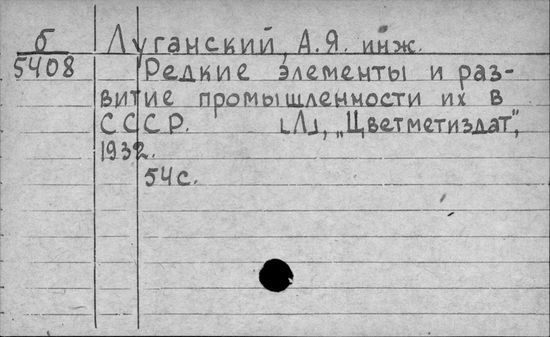 б Луганский, А.Я. инж.
5408 Редкие элементы и раз-
витие промышленности их в
СССР. [Л], „Цветметиздат",
1932.
54с.